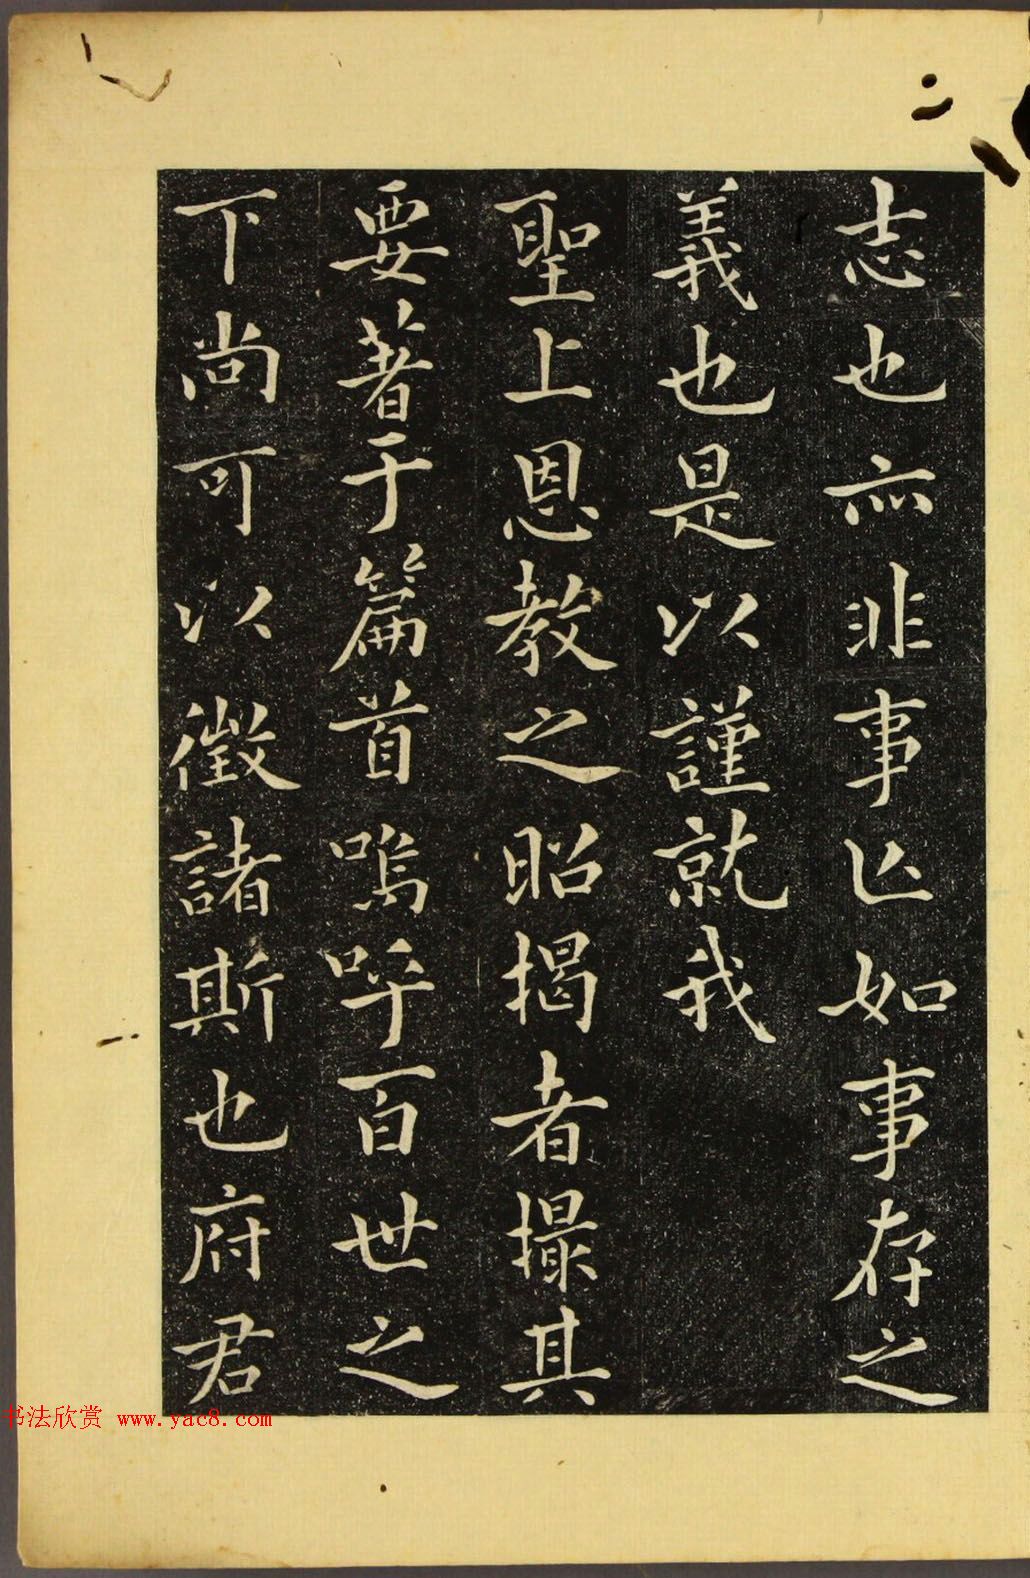 志也亦非事亾如事存之
義也是以謹就我
聖上恩教之昭揭者撮其
要著于篇首嗚呼百世之
下尚可以徵諸斯也府君
书法欣赏 www.yac8.com